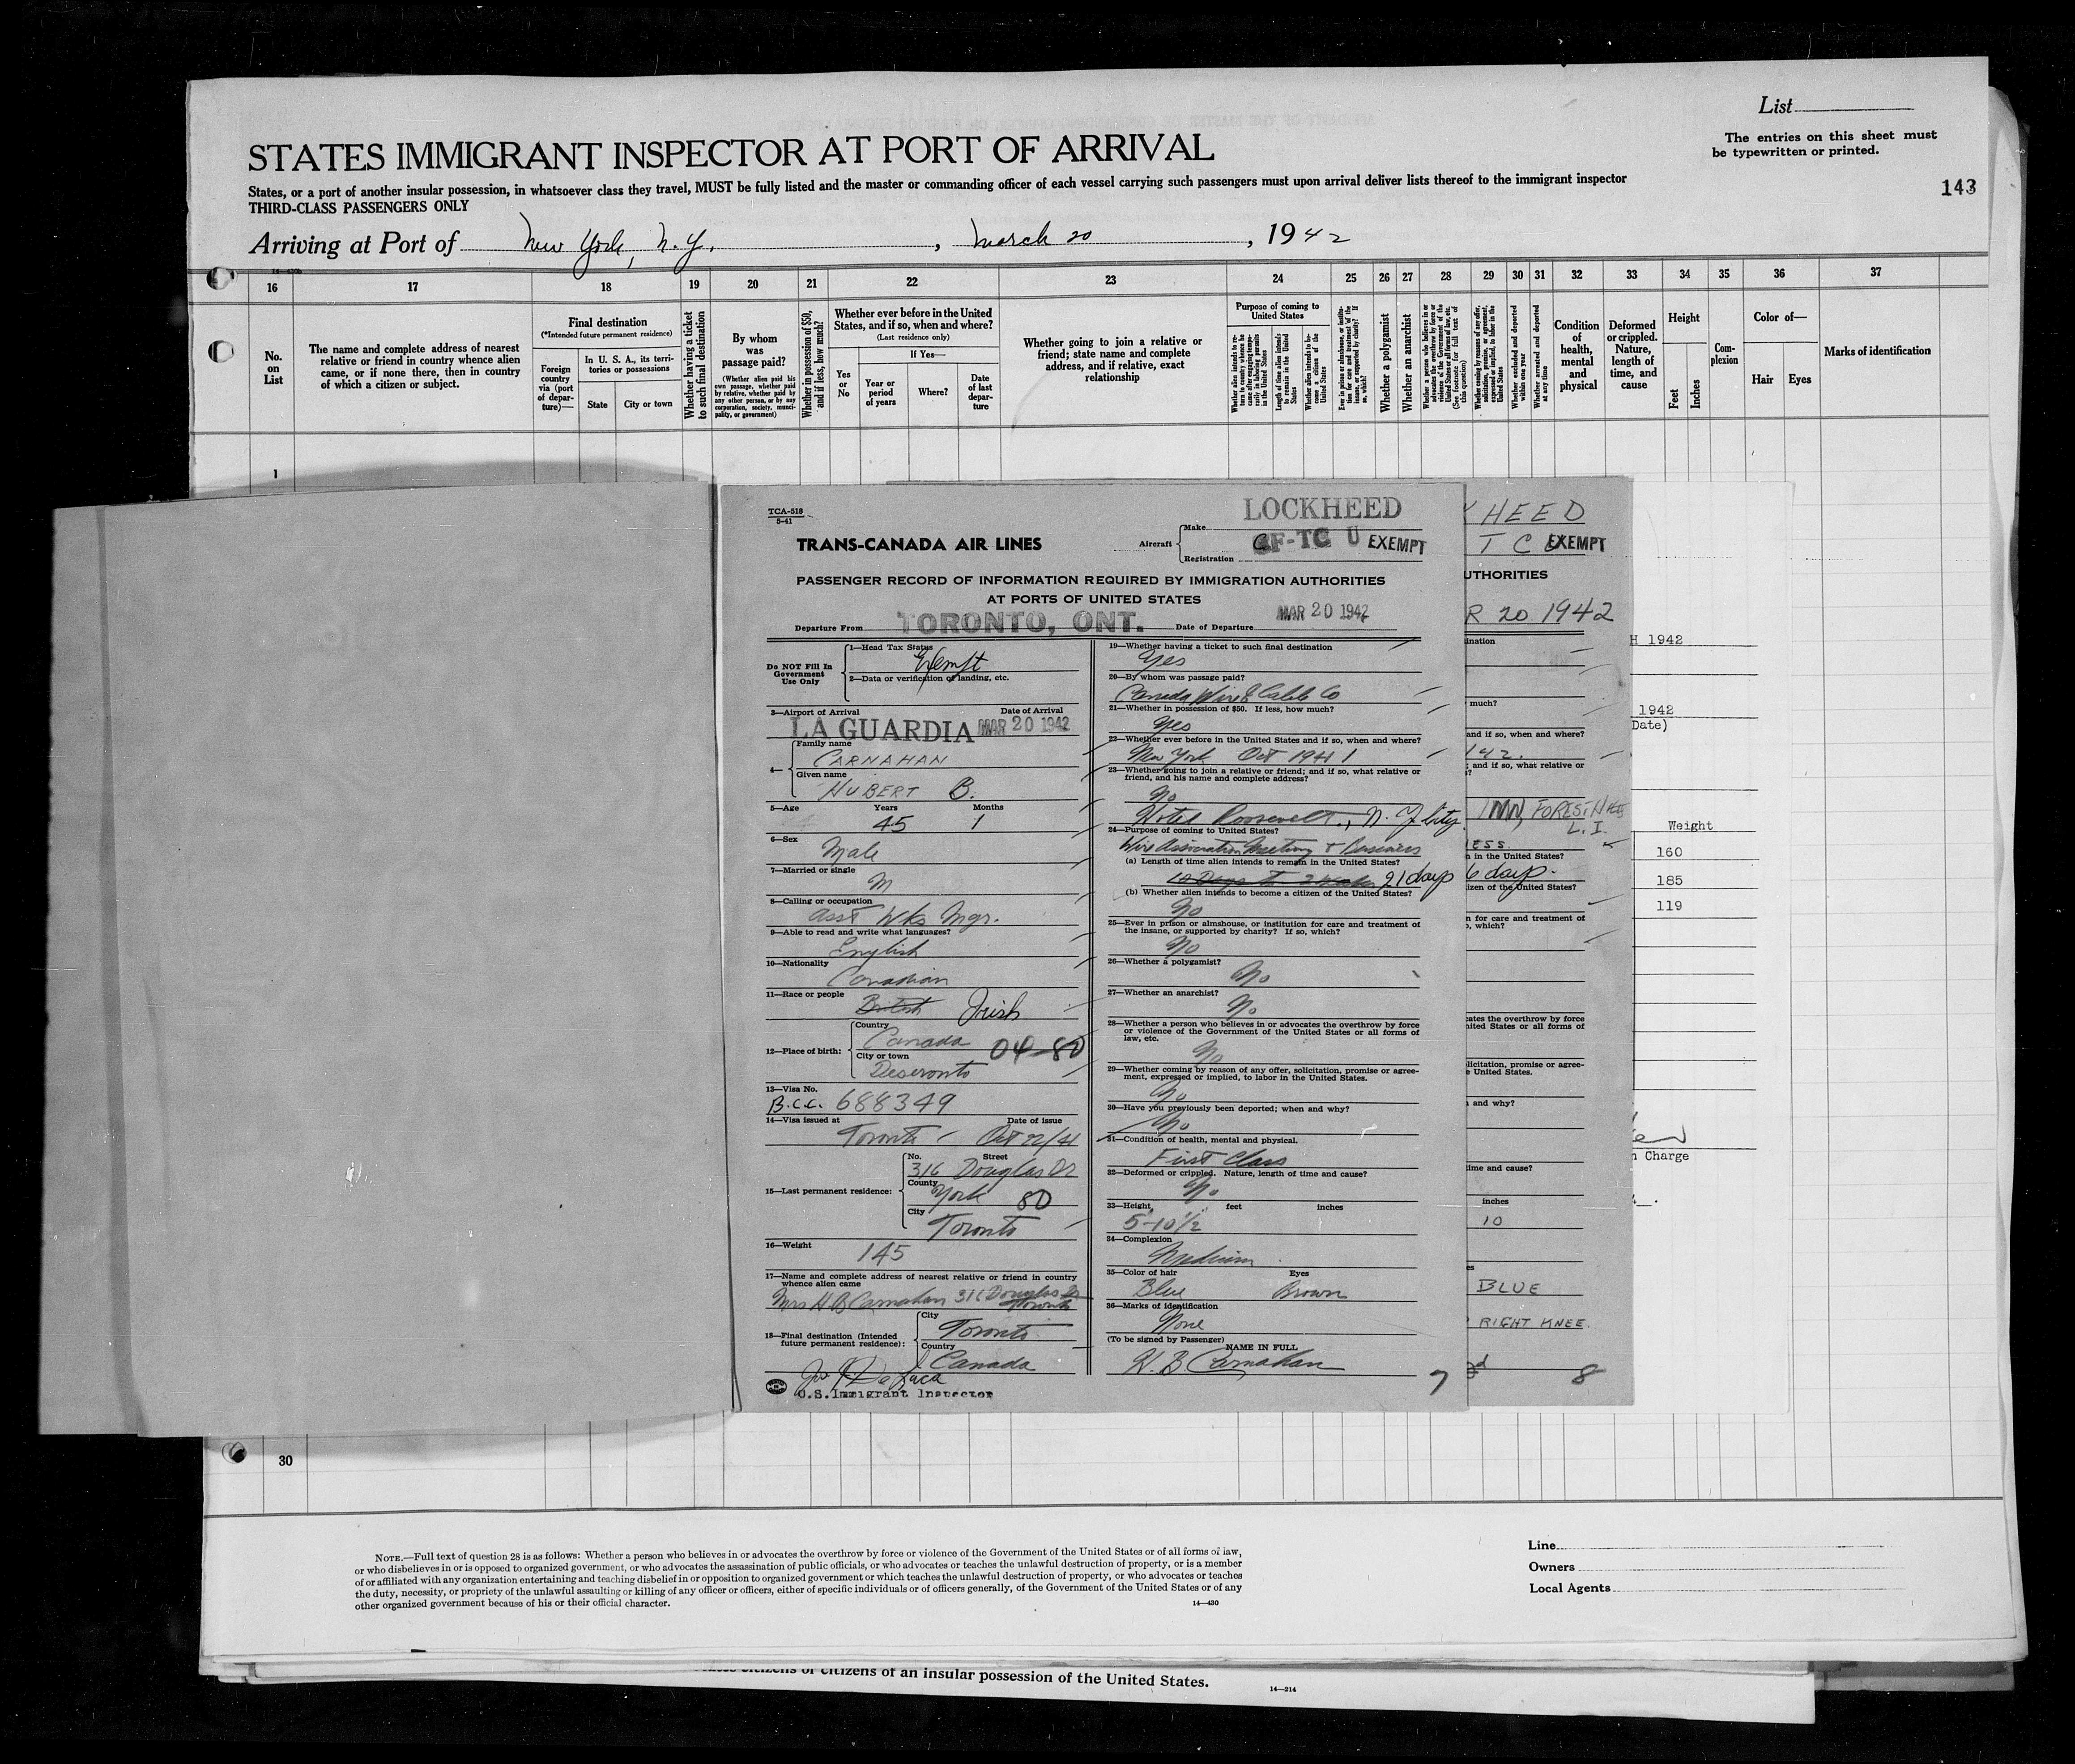 List
The entries on this sheet must
be typewritten or printed.
STATES IMMIGRANT INSPECTOR AT PORT OF ARRIVAL
States, or a port of another insular possession, in whatsoever class they travel, MUST be fully listed and the master or commanding officer of each vessel carrying such passengers must upon arrival deliver lists thereof to the immigrant inspector
THIRD-CLASS PASSENGERS ONLY
143
Arriving at Port of New York, N.Y., March 20, 1942
16 17 18 19 20 21 22 23 24 25 26 27 28 29 30 31 32 33 34 35 36 37
No. on List
The name and complete address of nearest
relative or friend in country whence alien
came, or if none there, then in country
of which a citizen or subject.
Final destination
(*Intended future permanent residence)
Foreign country via (port of departure)—
In U. S. A., its territories or possessions
State
City or town
Whether having a ticket to such final destination
By whom was passage paid?
(Whether alien paid his own passage, whether paid by relative, whether paid by any other person, or by any corporation, society, municipality, or government)
Whether in possession of $50, and if less, how much?
Whether ever before in the United
States, and if so, when and where?
(Last residence only)
Yes or No
If Yes—
Year or period of years
Where?
Date of last departure
Whether going to join a relative or
friend; state name and complete
address, and if relative, exact
relationship
Purpose of coming to United States
Whether a polygamist
Whether an anarchist
Condition of health, mental and physical
Deformed or crippled. Nature, length of time, and cause
Height
Feet
Inches
Complexion
Color of—
Hair
Eyes
Marks of identification
1
TCA-518
5-41
TRANS-CANADA AIR LINES
Aircraft
Make LOCKHEED
Registration CF-TC U EXEMPT
PASSENGER RECORD OF INFORMATION REQUIRED BY IMMIGRATION AUTHORITIES
AT PORTS OF UNITED STATES
Departure From TORONTO, ONT. Date of Departure MAR 20 1942
Do NOT Fill In
Government
Use Only
1—Head Tax Status
Exempt
2—Data or verification of landing, etc.
3—Airport of Arrival Date of Arrival
LA GUARDIA MAR 20 1942
4— Family name
CARNAHAN
Given name
HUBERT B.
5—Age Years Months
45 1
6—Sex
Male
7—Married or single
M
8—Calling or occupation
Asst Wks Mgr.
9—Able to read and write what languages?
English
10—Nationality
Canadian
11—Race or people
British Irish
12—Place of birth:
Country
Canada 04-80
City or town
Deseronto
13—Visa No.
B.C.C. 688349
14—Visa issued at Date of issue
Toronto - Oct 22/41
15—Last permanent residence:
No. Street
316 Douglas Dr
County
York 80
City
Toronto
16—Weight
145
17—Name and complete address of nearest relative or friend in country
whence alien came
Mrs H B Carnahan 316 Douglas Dr
Toronto
18—Final destination (Intended
future permanent residence):
City
Toronto
Country
Canada
U.S. Immigrant Inspector
19—Whether having a ticket to such final destination
Yes
20—By whom was passage paid?
Canada Wire & Cable Co
21—Whether in possession of $50. If less, how much?
Yes
22—Whether ever before in the United States and if so, when and where?
New York Oct 1941
23—Whether going to join a relative or friend; and if so, what relative or
friend, and his name and complete address?
No
Hotel Roosevelt, N.Y City
24—Purpose of coming to United States?
Wire Association Meeting & Business
(a) Length of time alien intends to remain in the United States?
10 Days to 2 Weeks 21 days
(b) Whether alien intends to become a citizen of the United States?
No
25—Ever in prison or almshouse, or institution for care and treatment of
the insane, or supported by charity? If so, which?
No
26—Whether a polygamist?
No
27—Whether an anarchist?
No
28—Whether a person who believes in or advocates the overthrow by force
or violence of the Government of the United States or all forms of
law, etc.
No
29—Whether coming by reason of any offer, solicitation, promise or agree-
ment, expressed or implied, to labor in the United States.
No
30—Have you previously been deported; when and why?
No
31—Condition of health, mental and physical.
First Class
32—Deformed or crippled. Nature, length of time and cause?
No
33—Height, feet inches
5-10 1/2
34—Complexion
Medium
35—Color of hair Eyes
Blue Brown
36—Marks of identification
None
(To be signed by Passenger) NAME IN FULL
H. B Carnahan
7
HEED
T C U EXEMPT
UTHORITIES
R 20 1942
ination
much?
and if so, when and where?
; and if so, what relative or
INN, FOREST HILLS
L. I.
ESS.
n in the United States?
6 days.
izen of the United States?
n for care and treatment of
o, which?
cates the overthrow by force
nited States or all forms of
licitation, promise or agree-
e United States.
and why?
time and cause?
inches
10
BLUE
RIGHT KNEE.
8
H 1942
1942
Date)
Weight
160
185
119
n Charge
30
NOTE.—Full text of question 28 is as follows: Whether a person who believes in or advocates the overthrow by force or violence of the Government of the United States or of all forms of law,
or who disbelieves in or is opposed to organized government, or who advocates the assassination of public officials, or who advocates or teaches the unlawful destruction of property, or is a member
of or affiliated with any organization entertaining and teaching disbelief in or opposition to organized government or which teaches the unlawful destruction of property, or who advocates or teaches
the duty, necessity, or propriety of the unlawful assaulting or killing of any officer or officers, either of specific individuals or of officers generally, of the Government of the United States or of any
other organized government because of his or their official character.
14—430
Line
Owners
Local Agents
citizens or citizens of an insular possession of the United States.
14—214